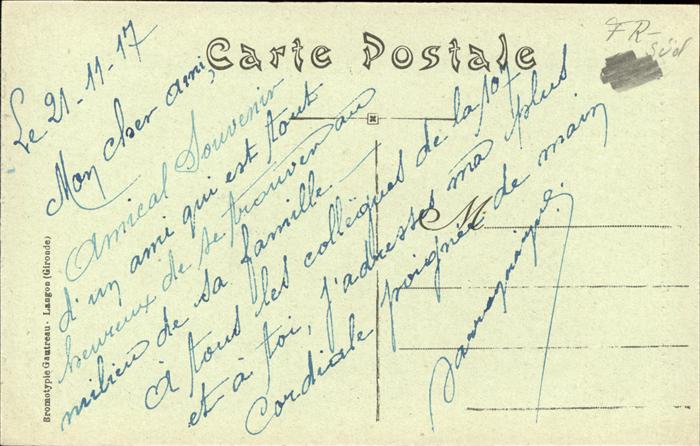 Carte Postale
FR-
süd
Le 21-11-17
Mon cher ami,
Amical Souvenir
d'un ami qui est tout
heureux de se trouver au
milieu de sa famille.
À tous les collègues de la 107
et à toi, j'adresses ma plus
cordiale poignée de main
M
Bromotypie Gautreau - Langon (Gironde)